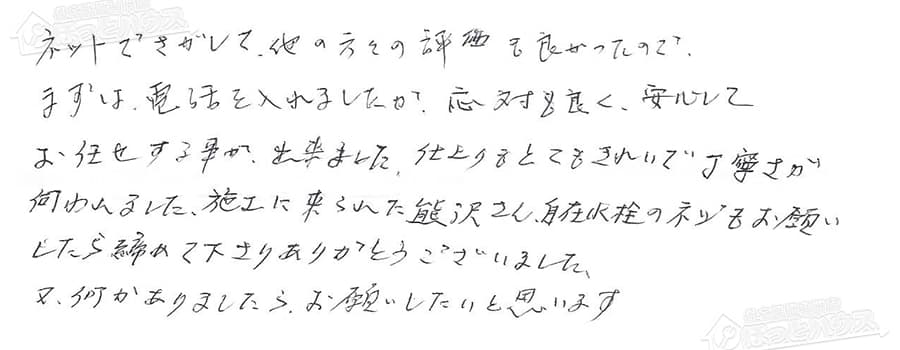 ネットでさがして、他の方々の評価も良かったので、
まずは、電話を入れましたが、応対も良く、安心して
お任せする事が、出来ました、仕上りもとてもきれいで丁寧さが
伺われました、施工に来られた熊沢さん、自在水栓のネジもお願い
したら締めて下さりありがとうございました、
又、何かありましたら、お願いしたいと思います